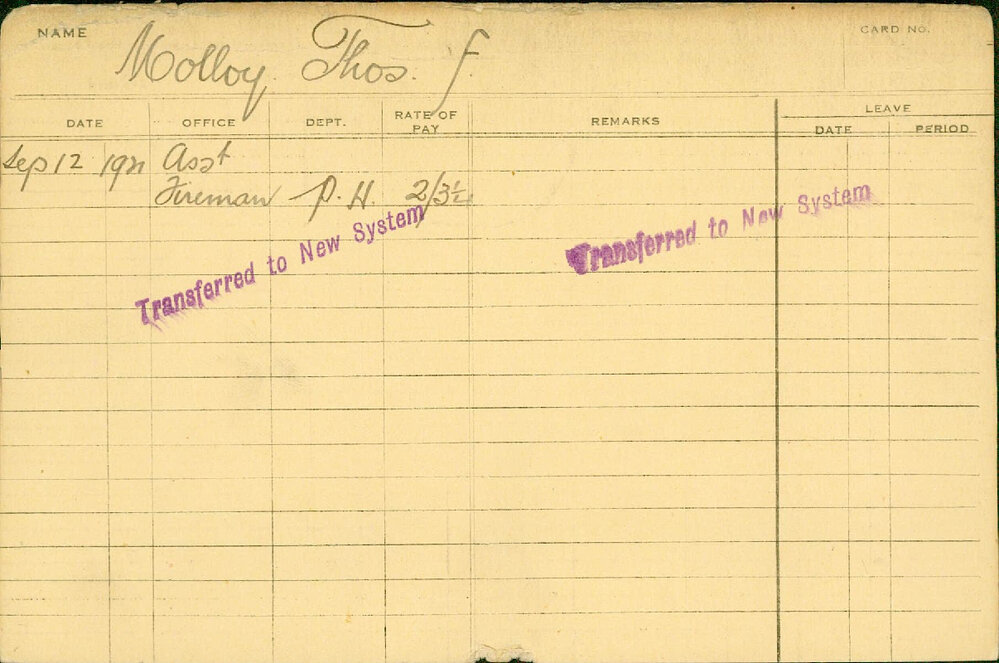 NAME Molloy Thos. J. CARD NO.
DATE OFFICE DEPT. RATE OF PAY REMARKS LEAVE
DATE PERIOD
Sep 12 1921 Asst
Fireman P.H. 2/3½
Transferred to New System
Transferred to New System